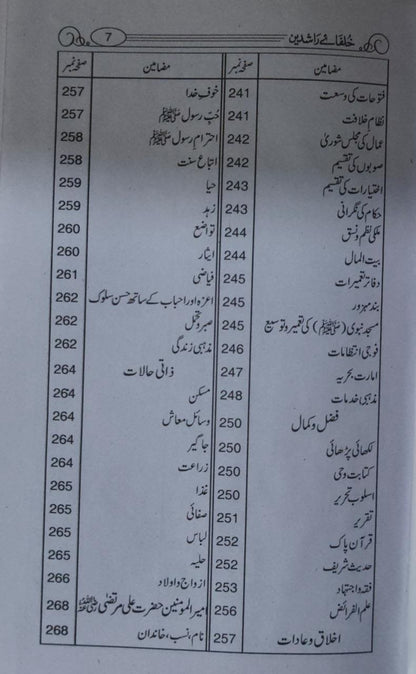 خُلفائے رَاشدین 7
مضامین صفحہ نمبر
فتوحات کی وسعت 241
نظامِ خلافت 241
عمال کی مجلس شوریٰ 242
صوبوں کی تقسیم 242
اختیارات کی تقسیم 243
حکام کی نگرانی 243
ملکی نظم و نسق 244
بیت المال 244
دفاتر تعمیرات 245
بند مہزور 245
مسجد نبوی (ﷺ) کی تعمیر و توسیع 245
فوجی انتظامات 246
امارت بحریہ 247
مذہبی خدمات 248
فضل و کمال 250
لکھائی پڑھائی 250
کتابت وحی 250
اسلوب تحریر 250
تقریر 251
قرآن پاک 252
حدیث شریف 252
فقہ و اجتہاد 253
علم الفرائض 256
اخلاق و عادات 257
مضامین صفحہ نمبر
خوفِ خدا 257
حُبّ رسول ﷺ 257
احترام رسول ﷺ 258
اتباع سنت 258
حیا 259
زہد 259
تواضع 260
ایثار 260
فیاضی 261
اعزہ اور احباب کے ساتھ حسن سلوک 262
صبر و تحمل 262
مذہبی زندگی 262
ذاتی حالات 264
مسکن 264
وسائل معاش 264
جاگیر 264
زراعت 264
غذا 265
صفائی 265
لباس 265
حلیہ 265
ازدواج و اولاد 266
امیر المومنین حضرت علی مرتضیٰ 268
نام، نسب، خاندان 268